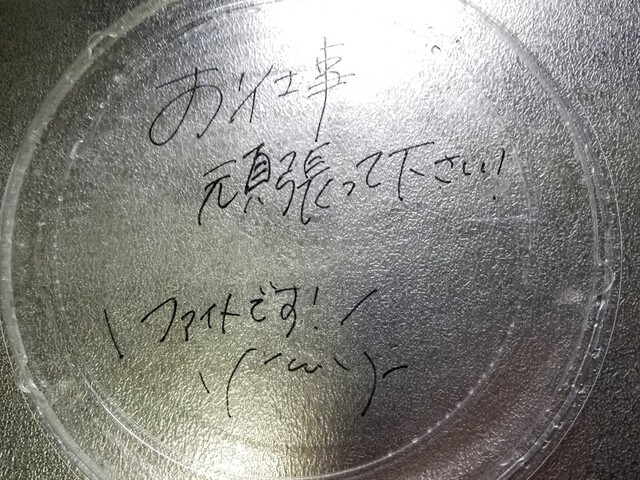 お仕事
頑張って下さい!
\ファイトです! /
\(´ω`)ー